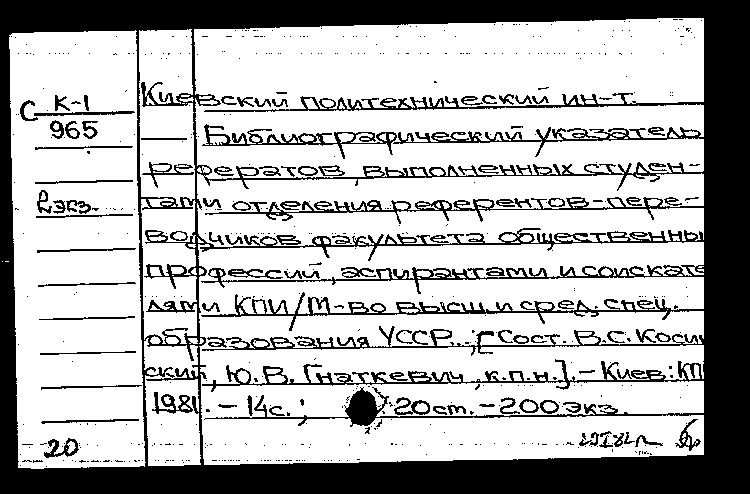 С К-1
965
2 экз.
20
Киевский политехнический ин-т.
Библиографический указатель
рефератов, выполненных студен-
тами отделения референтов-пере-
водчиков факультета общественны
профессий, аспирантами и соискате
лями КПИ/М-во высш. и сред. спец.
образования УССР. ; [Сост. В.С. Косин
ский, Ю.В. Гнаткевич, к.п.н.]. - Киев: КП
1981. - 14с. ; 20 ст. - 200 экз.